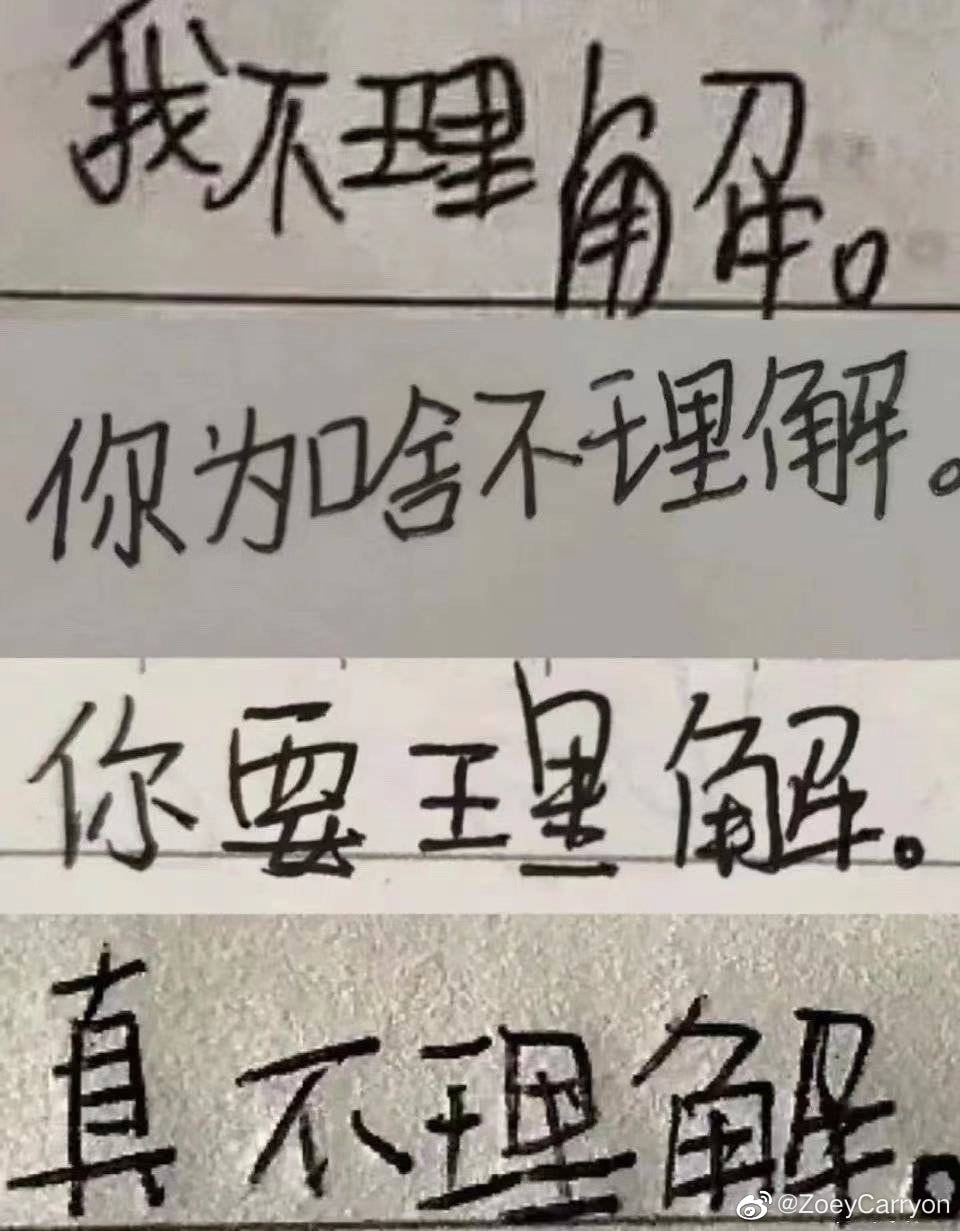 我不理解。
你为啥不理解。
你要理解。
真不理解。
@ZoeyCarryon